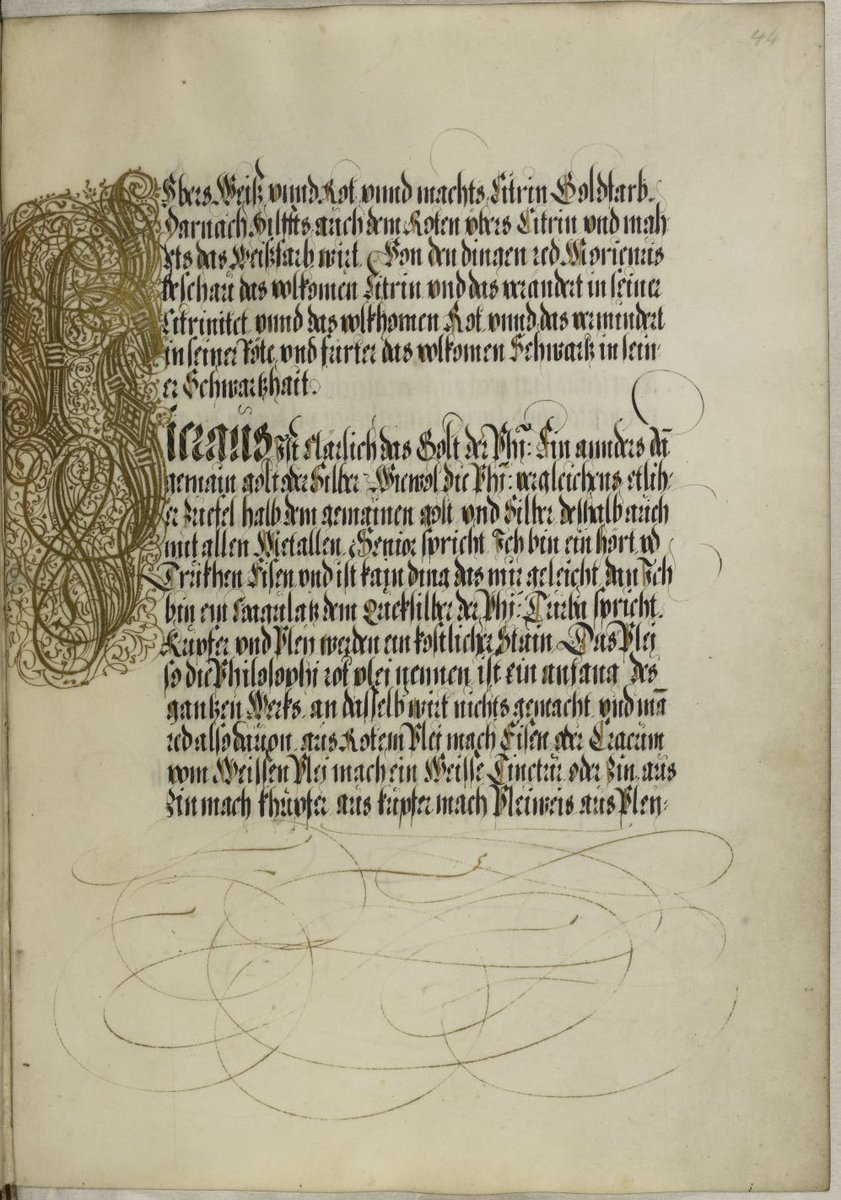 44
Vbers Weiß vnnd Rot vnnd machts Citrin Goldfarb.
Darnach Hilffts auch dem Roten vbers Citrin vnd mah
ets das Weißfarb wirt. Von den dingen red Morienus
beschau das volkomen Citrin vnd das verandert in seiner
Citrinitet vnnd das volkhomen Rot vnnd das vermindert
in seiner Röte vnd fürter das volkomen Schwartz in sein
er Schwartzhait.
Hieraus Ist klarlich das Golt der Phi: Ein annders dā
gemain golt oder Silber Wiewol die Phi: vergleichens etlih
er Zuefel halb dem gemainen golt vnd Silber deshalb auch
mit allen Metallen. Senior spricht Ich bin ein hort vō
Trükhen Eisen vnd ist kain ding das mir geleicht dan Ich
bin ein Coagulatz dem Quecksilber der Phi: Turba spricht.
Kupfer vnd Pley werden ein kostlicher Stain Das Plei
so die Philosophi rot plei nennen ist ein anfang des
gantzen Werks. an dasselb wirt nichts gemacht vnd mā
red also daruon. aus Rotem Plei mach Eisen oder Cracum
vom Weissen Plei mach ein Weisse Tinctur oder Zin. aus
Zin mach khupfer aus kupfer mach Pleiweis aus Pley-